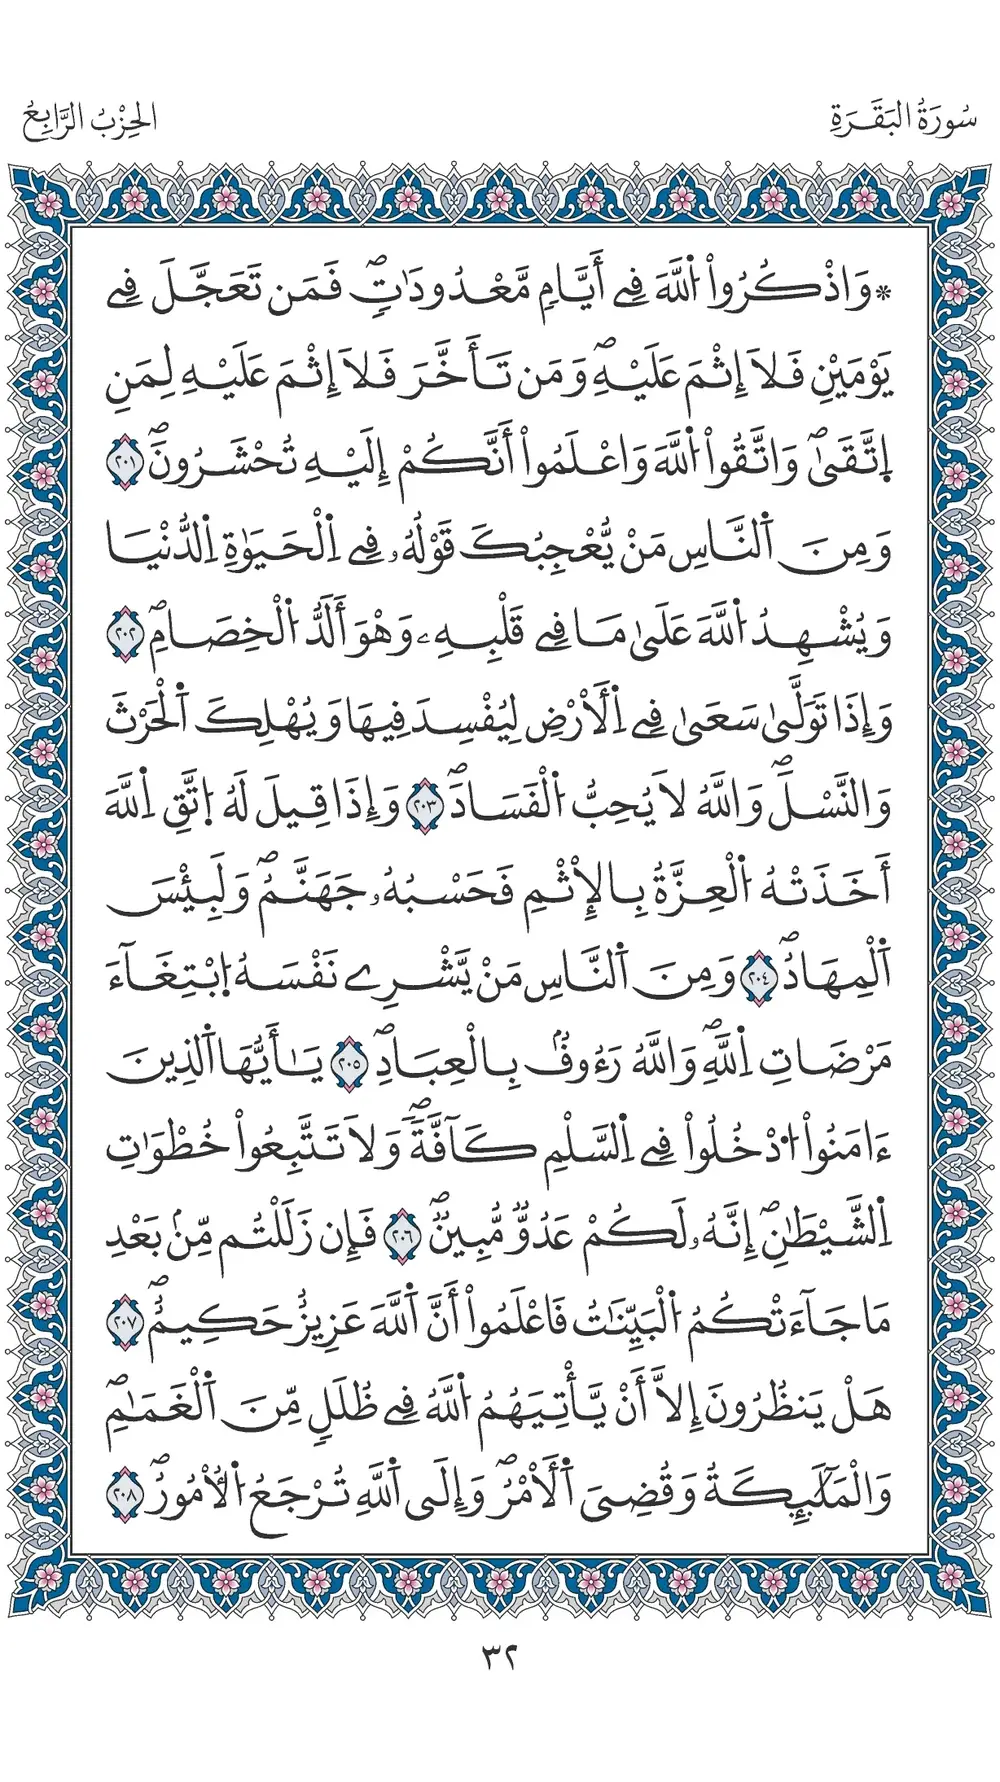 سُورَةُ البَقَرَةِ
الحِزْبُ الرَّابِعُ
* وَاذْكُرُواْ اُللَّهَ فِے أَيَّامٖ مَّعْدُودَٰتٖۖ فَمَن تَعَجَّلَ فِے
يَوْمَيْنِ فَلَا إِثْمَ عَلَيْهِۖ وَمَن تَأَخَّرَ فَلَا إِثْمَ عَلَيْهِ لِمَنِ
اِتَّقَىٰۖ وَاتَّقُواْ اُللَّهَ وَاعْلَمُواْ أَنَّكُمْ إِلَيْهِ تُحْشَرُونَۖ ٢٠١
وَمِنَ اَلنَّاسِ مَنْ يُّعْجِبُكَ قَوْلُهُۥ فِے اِلْحَيَوٰةِ اِلدُّنْيَا
وَيُشْهِدُ اُللَّهَ عَلَىٰ مَا فِے قَلْبِهِۦ وَهْوَ أَلَدُّ اُلْخِصَامِۖ ٢٠٢
وَإِذَا تَوَلَّىٰ سَعَىٰ فِے اِلْأَرْضِ لِيُفْسِدَ فِيهَا وَيُهْلِكَ اَلْحَرْثَ
وَالنَّسْلَۖ وَاللَّهُ لَا يُحِبُّ اُلْفَسَادَۖ ٢٠٣ وَإِذَا قِيلَ لَهُ اُتَّقِ اِللَّهَ
أَخَذَتْهُ اُلْعِزَّةُ بِالْإِثْمِ فَحَسْبُهُۥ جَهَنَّمُۖ وَلَبِئْسَ
اَلْمِهَادُۖ ٢٠٤ وَمِنَ اَلنَّاسِ مَنْ يَّشْرِے نَفْسَهُ اُبْتِغَآءَ
مَرْضَاتِ اِللَّهِۖ وَاللَّهُ رَءُوفُۢ بِالْعِبَادِۖ ٢٠٥ يَٰأَيُّهَا اَلذِينَ
ءَامَنُواْ اُدْخُلُواْ فِے اِلسَّلْمِ كَآفَّةٗۖ وَلَا تَتَّبِعُواْ خُطْوَٰتِ
اِلشَّيْطَٰنِۖ إِنَّهُۥ لَكُمْ عَدُوّٞ مُّبِينٞۖ ٢٠٦ فَإِن زَلَلْتُم مِّنۢ بَعْدِ
مَا جَآءَتْكُمُ اُلْبَيِّنَٰتُ فَاعْلَمُواْ أَنَّ اَللَّهَ عَزِيزٌ حَكِيمٌۖ ٢٠٧
هَلْ يَنظُرُونَ إِلَّا أَنْ يَّأْتِيَهُمُ اُللَّهُ فِے ظُلَلٖ مِّنَ اَلْغَمَٰمِۖ
وَالْمَلَٰٓئِكَةُ وَقُضِيَ اَلْأَمْرُۖ وَإِلَى اَللَّهِ تُرْجَعُ اُلْأُمُورُۖ ٢٠٨
٣٢